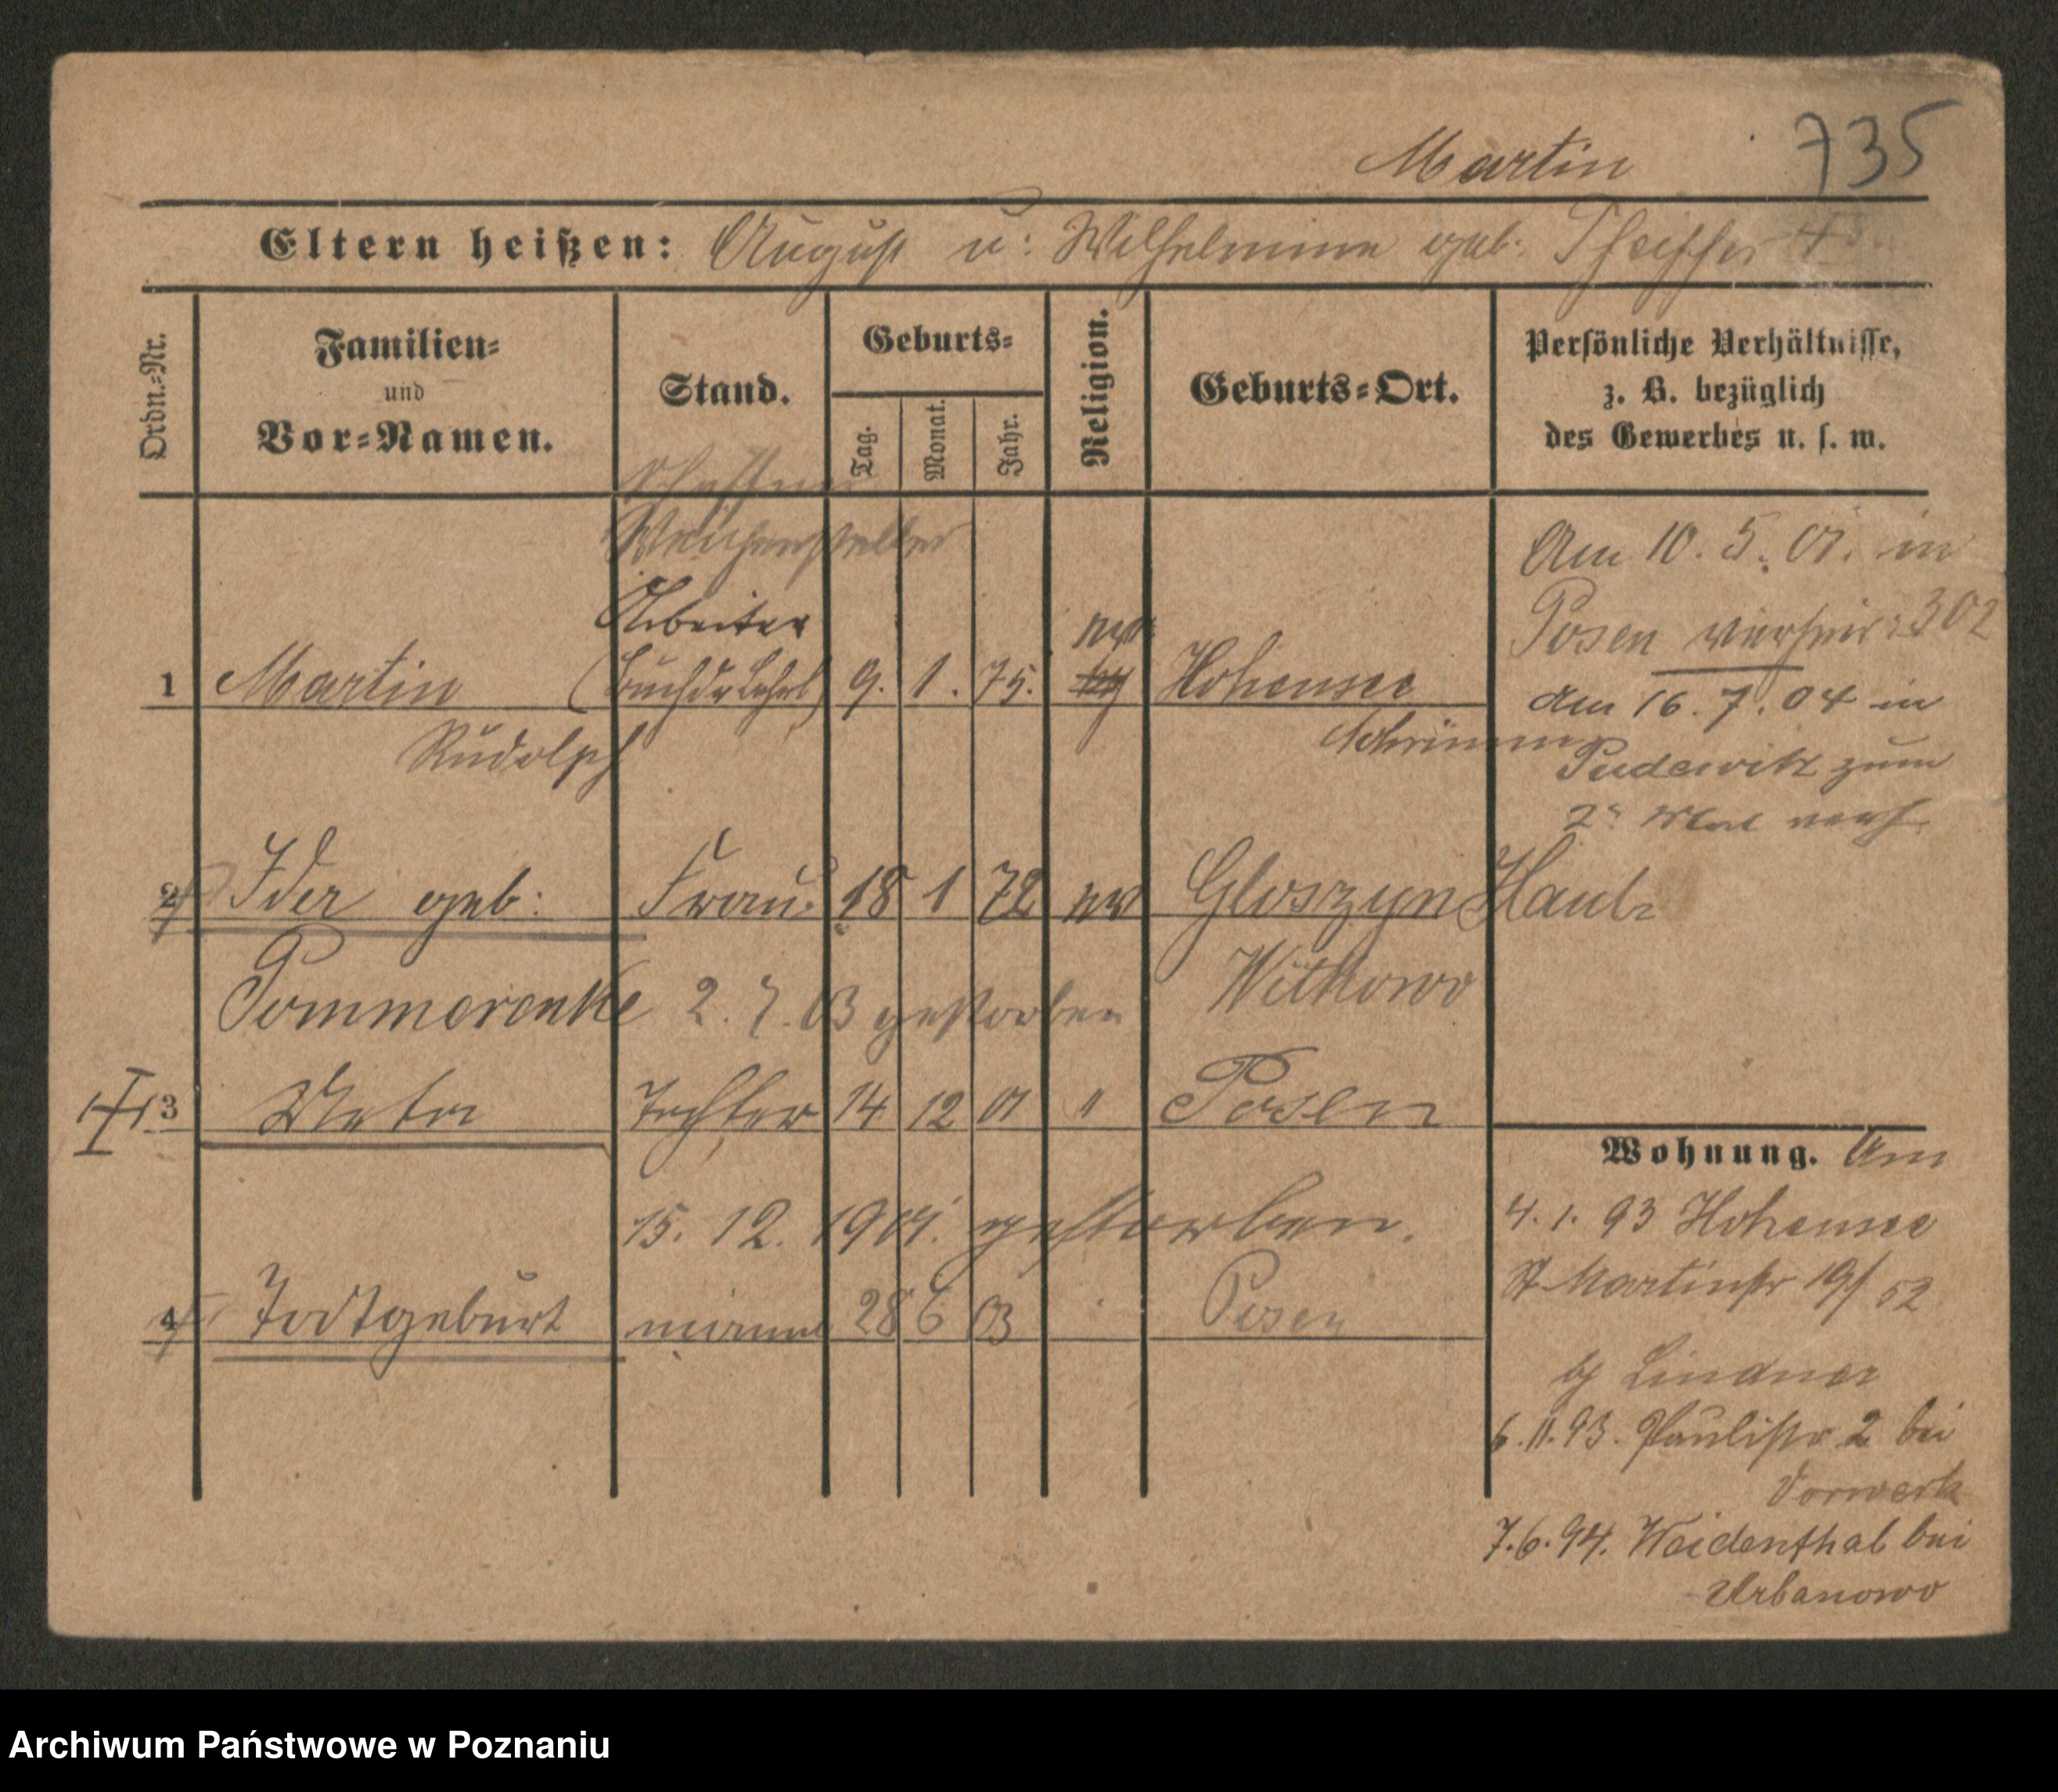 Martin 735
Eltern heißen: August u: Wilhelmine geb. Pfeiffer
Ordn.-Nr.
Familien-
und
Vor-Namen.
Stand.
Geburts-
Tag.
Monat.
Jahr.
Religion.
Geburts-Ort.
Persönliche Verhältnisse,
z. B. bezüglich
des Gewerbes u. s. w.
Schaffner
Weichensteller
Arbeiter
1 Martin (Buchdr Lehrl) 9. 1. 75. Hohensee
Rudolph
Schrimm
Am 10. 5. 01. in
Posen verheir: 302
Am 16. 7. 04 in
Pudewitz zum
2n Mal verh
2 Ida geb: Frau 18 1 72 ev Gloszyn Hauld
Pommerenke 2. 7. 03 gestorben Witkowo
3 Meta Tochter 14 12 01 " Posen
15. 12. 1901. gestorben.
4 Todtgeburt 28 6 03 Posen
Wohnung. Am
4. 1. 93 Hohensee
St Martinstr 19/ 52
by Lindner
6. 11. 93. Paulistr 2 bei
Vorwerk
7. 6. 94. Weidenthal bei
Urbanowo
Archiwum Państwowe w Poznaniu